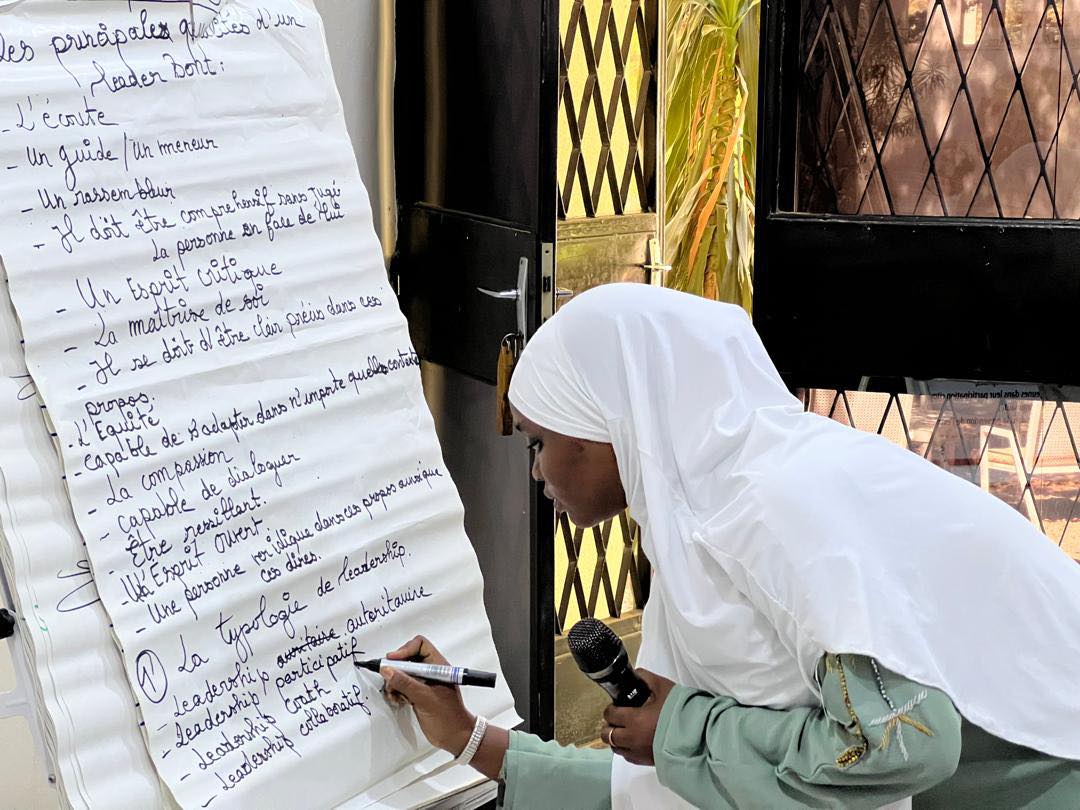 les principales qualités d'un
leader Sont:
- L'écoute
- Un guide / un meneur
- Un rassembleur
- Il doit être compréhensif sans Jugé
La personne en face de lui
- Un Esprit Critique
- La maîtrise de soi
- Il se doit d'être clair précis dans ces
propos.
- L'Equité
- capable de s'adapter dans n'importe quelles contexte
- La compassion
- capable de dialoguer
- Être ressillant.
- Un Esprit Ouvert
- Une personne véridique dans ces propos ainsi que
ces dires.
① La typologie de leadership.
- Leadership autoritaire
- Leadership participatif
- Leadership Coath
- Leadership collaboratif.